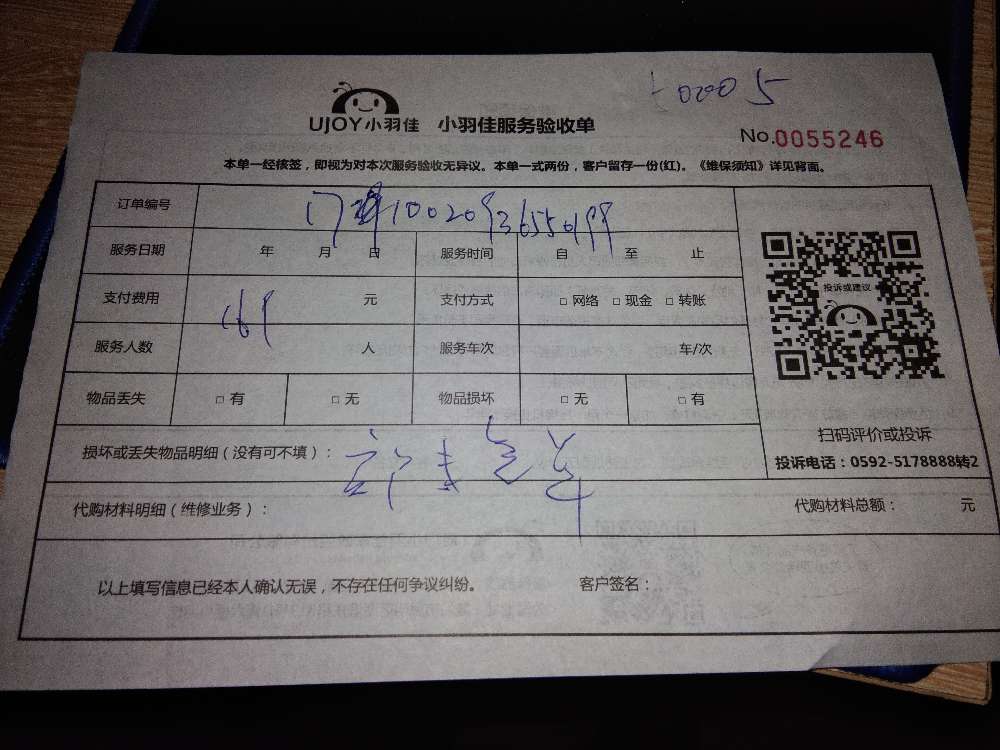 UJOY小羽佳 小羽佳服务验收单
No.0055246
本单一经核签，即视为对本次服务验收无异议。本单一式两份，客户留存一份(红)。《维保须知》详见背面。
订单编号
服务日期 年 月 日 服务时间 自 至 止
支付费用 元 支付方式 □ 网络 □ 现金 □ 转账
服务人数 人 服务车次 车/次
物品丢失 □ 有 □ 无 物品损坏 □ 无 □ 有
投诉或建议
扫码评价或投诉
投诉电话：0592-5178888转2
损坏或丢失物品明细（没有可不填）：
代购材料明细（维修业务）： 代购材料总额： 元
以上填写信息已经本人确认无误，不存在任何争议纠纷。 客户签名：